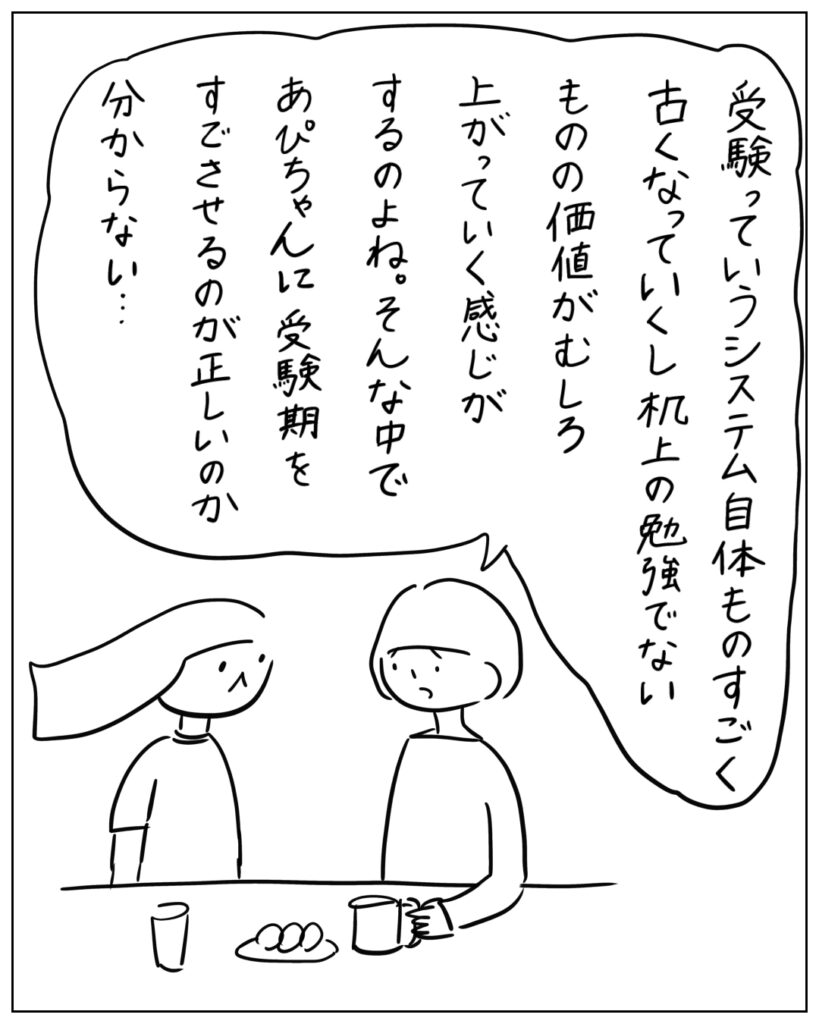 受験っていうシステム自体ものすごく
古くなっていくし机上の勉強でない
ものの価値がむしろ
上がっていく感じが
するのよね。そんな中で
あぴちゃんに受験期を
すごさせるのが正しいのか
分からない…